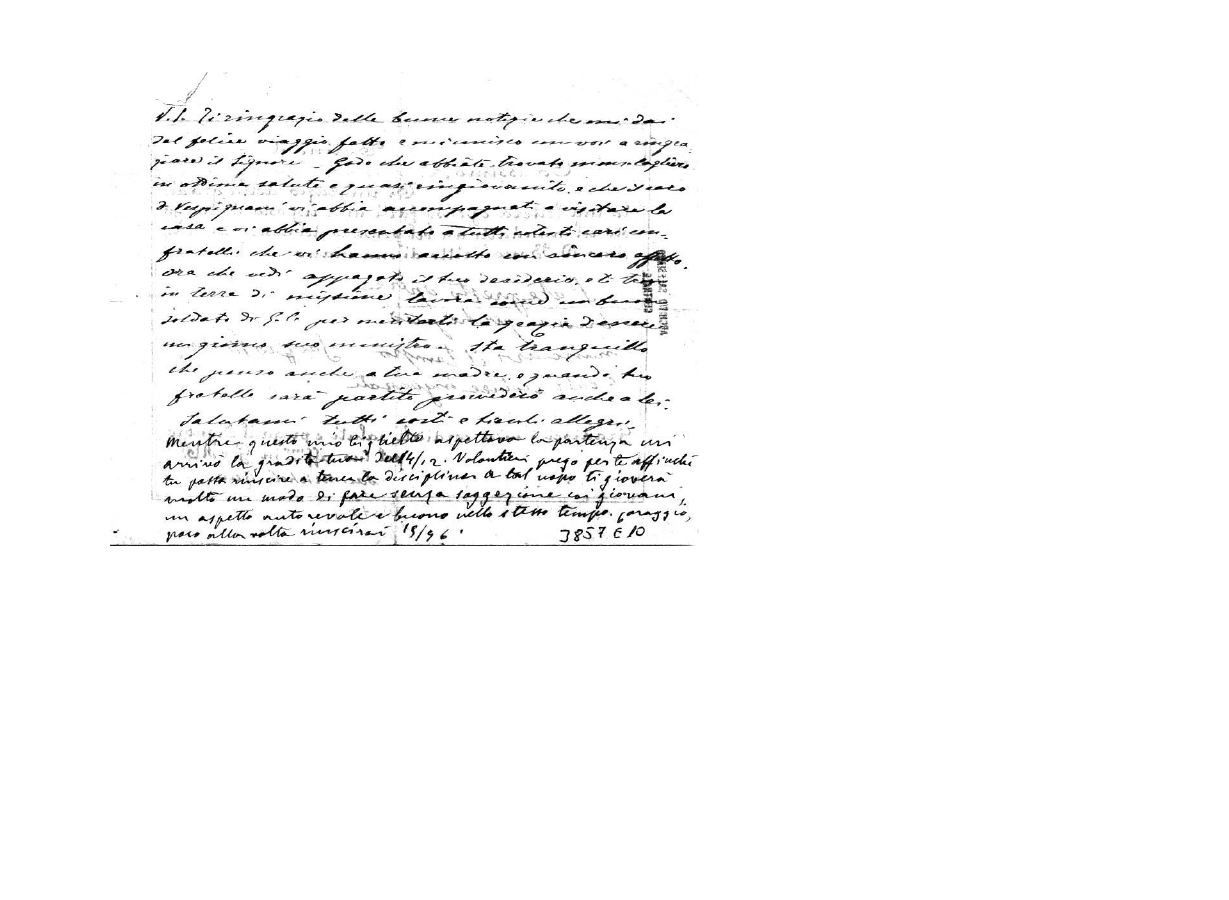 P.S. Ti ringrazio delle buone notizie che mi dai
del felice viaggio fatto e mi unisco con voi a ringra
ziare il Signore - Godo che abbiate trovato mons. Cagliero
in ottima salute e quasi ringiovanito, e che il caro
D. Vespignani vi abbia accompagnati a visitare la
casa e vi abbia presentato a tutti cotesti cari con-
fratelli che vi hanno accolto con sincero affetto.
ora che vedi appagato il tuo desiderio, e ti trovi
in terra di missione, lavora come un buon
soldato di G. C. per meritarti la grazia d'essere
un giorno suo ministro - Sta tranquillo
che penso anche a tua madre, e quando tuo
fratello sarà partito provvederò anche a lei.
Salutami tutti costì e tienti allegro.
Mentre questo mio biglietto aspettava la partenza mi
arrivò la gradita tua del 14/12. Volontieri prego per te affinchè
tu possa riuscire a tener la disciplina. A tal uopo ti gioverà
molto un modo di fare senza soggezione coi giovani,
un aspetto autorevole e buono nello stesso tempo. Coraggio,
poco alla volta riuscirai 15/96
3857 E 10
ARCHIVIO SALESIANO
CENTRALE